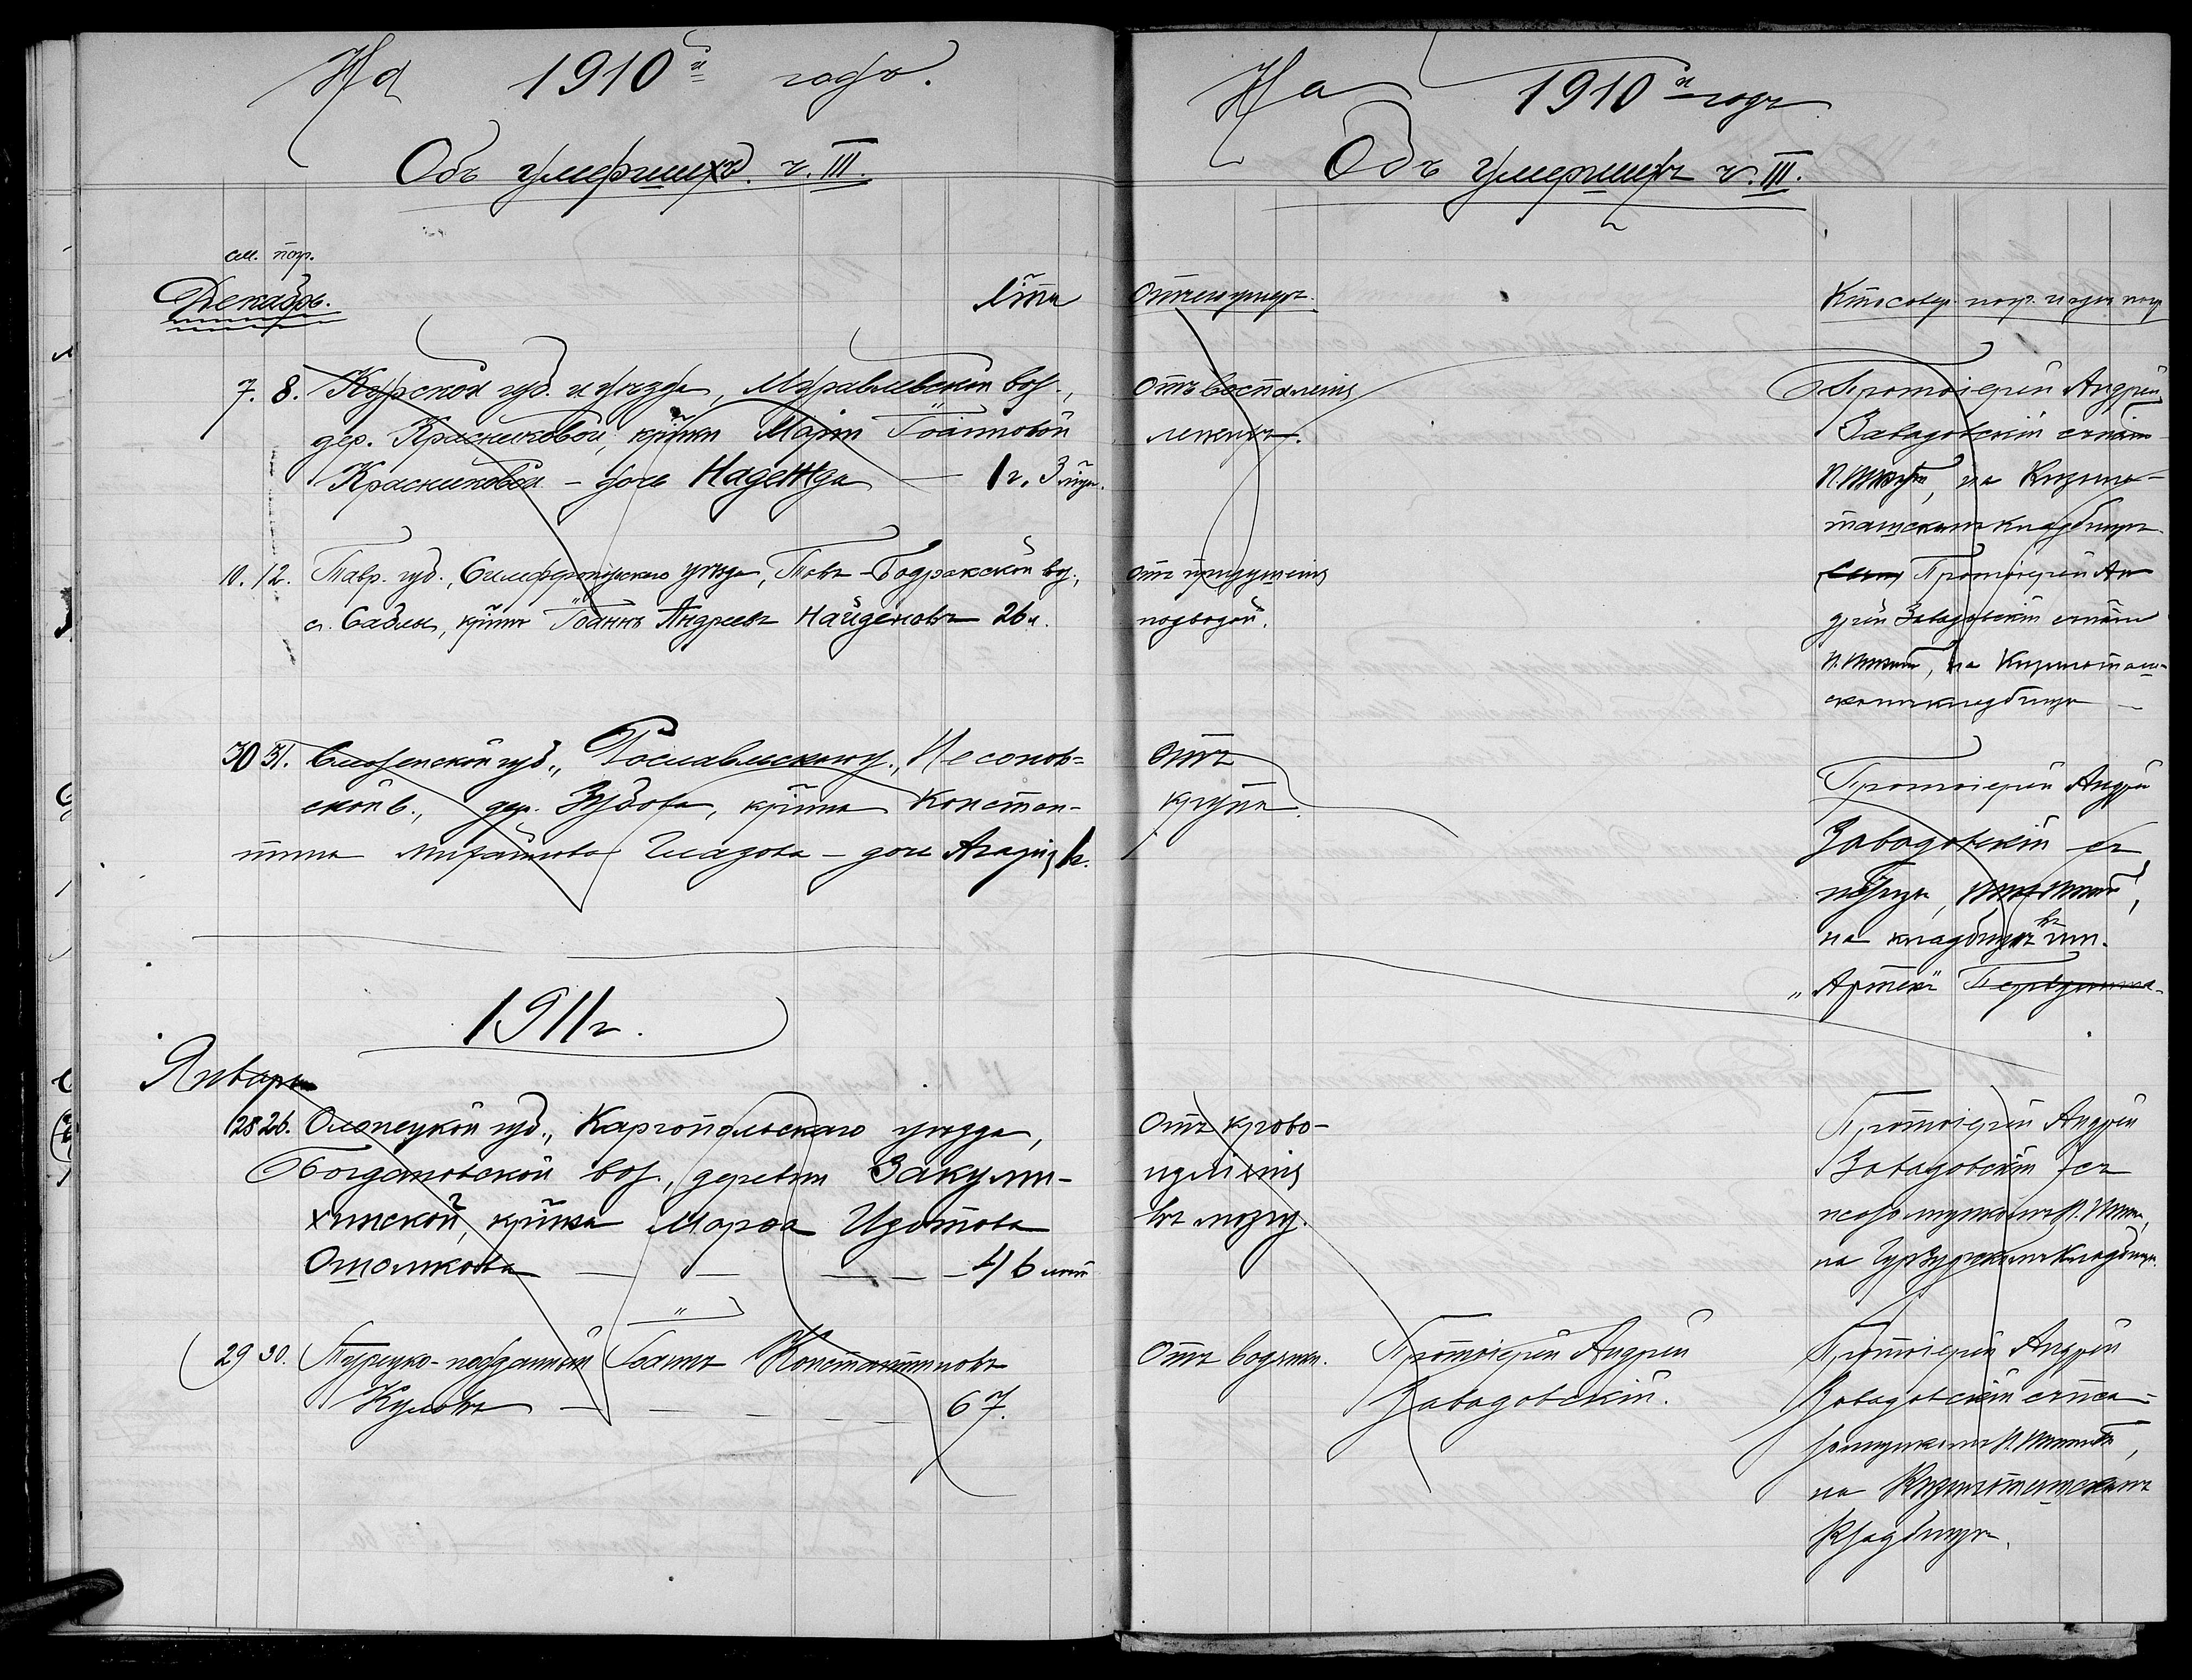 На 1910й годъ.
Объ умершихъ ч. III.
см. пог.
Декабрь.
лѣта
7. 8. Курской губ. и уѣзда, Муравлевской вол.,
дер. Красниковой, кр̃тки Маріи Іоанновой
Красниковой - дочь Надежда — 1 г. 3 мѣс.
10. 12. Тавр. губ., Симферопольскаго уѣзда, Тавъ-Бодракской вол.,
с. Саблы, кр̃тинъ Іоаннъ Андреевъ Найденовъ 26 л.
30 31. Смоленской губ., Рославльскаго у., Несонов-
ской в., дер. Зубова, кр̃тина Констан-
тина Глазова - дочь 1 г.
1911 г.
Января
28 26. Олонецкой губ., Каргопольскаго уѣзда,
Богдановской вол., деревни Закули-
хинской, кр̃тка Марѳа Изотова
— — — — — 46 лѣтъ
29 30. Турецко-подданный Іоаннъ Константиновъ
— — — — — 67.
На 1910й годъ
Объ умершихъ ч. III.
Отъ чего умеръ.
Кто совер. погр. и гдѣ погр
Отъ воспаленія
легкихъ.
Протоіерей Андрей
Завадовскій съ
на Кизил-
ташскомъ кладбищѣ
отъ придушенія
подводой.
Протоіерей Ан
дрей Завадовскій
на Кизилташ-
скомъ кладбищѣ
Отъ
крупа.
Протоіерей Андрей
Завадовскій съ
на кладбищѣ въ им.
„Артекъ"
Отъ крово-
изліянія
въ мозгу.
Протоіерей Андрей
Завадовскій съ
псаломщикомъ
на Гурзуфскомъ кладбищѣ.
Отъ водянки.
Протоіерей Андрей
Завадовскій.
Протоіерей Андрей
Завадовскій съ пса-
ломщикомъ
на Кизилташскомъ
кладбищѣ.